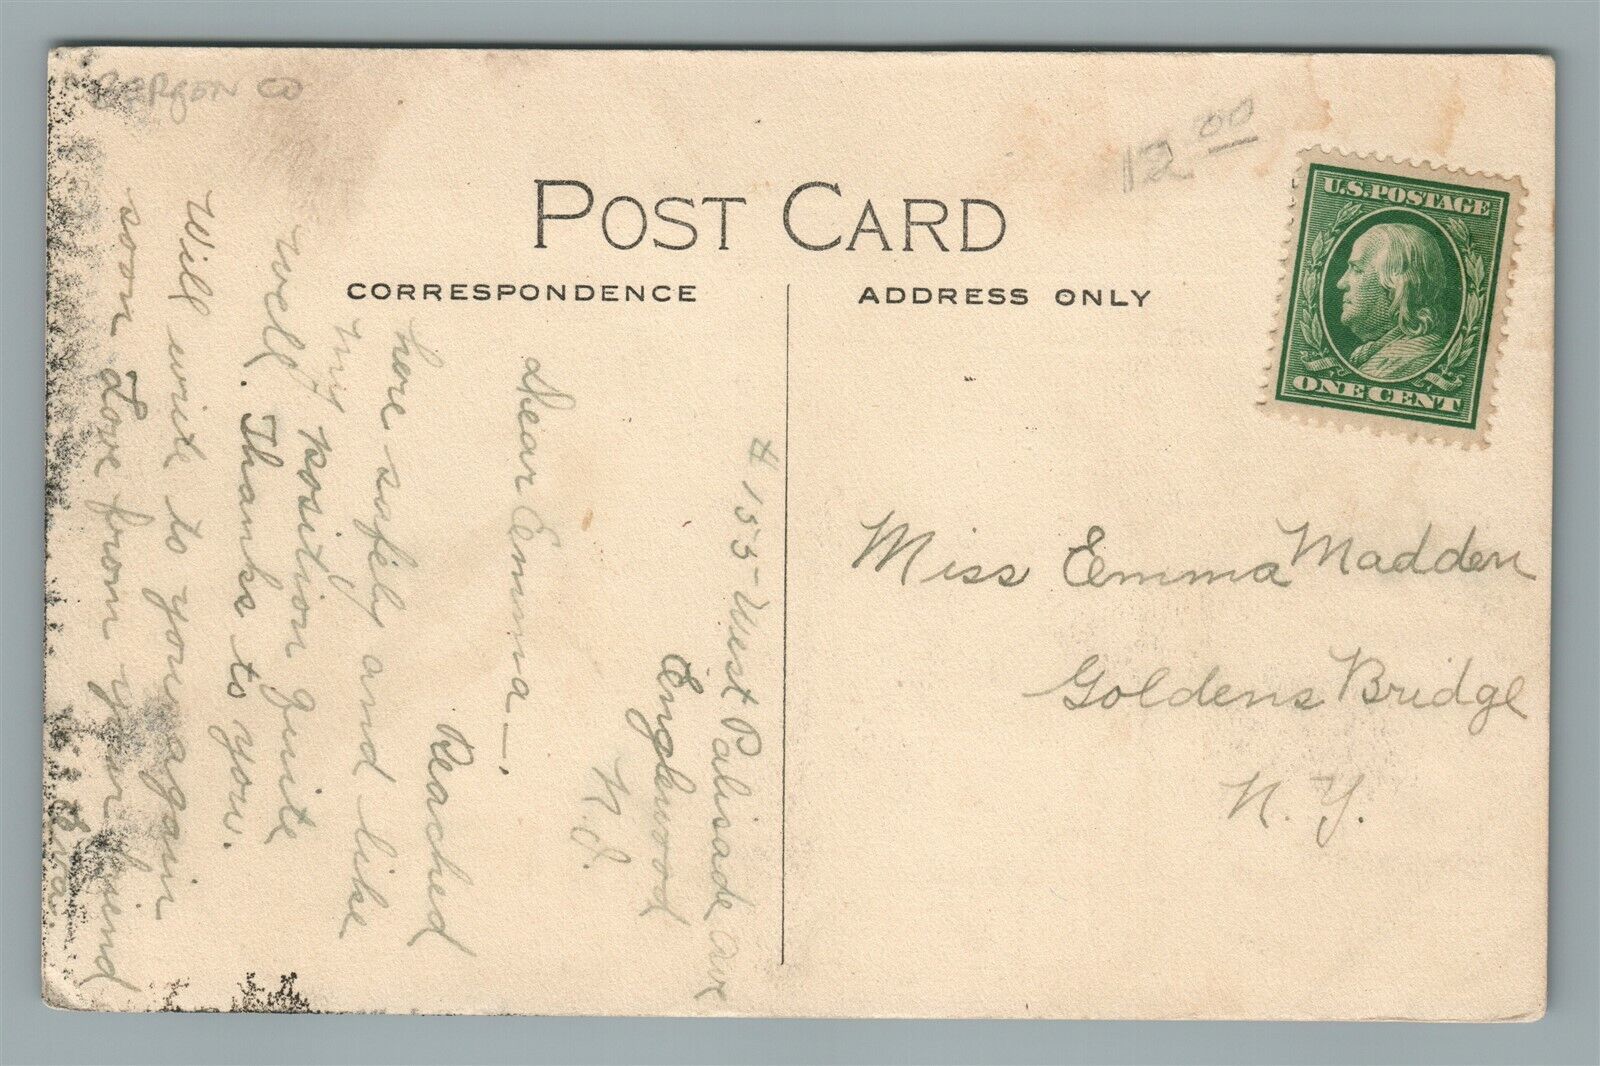 BERGEN CO
12.00
POST CARD
CORRESPONDENCE
ADDRESS ONLY
U.S. POSTAGE
ONE CENT
# 153 - West Palisade Ave
Englewood
N. J.
Dear Emma—.
Reached
here safely and like
my position quite
well. Thanks to you.
Will write to you again
soon Love from your friend
Eva.
Miss Emma Madden
Goldens Bridge
N. Y.